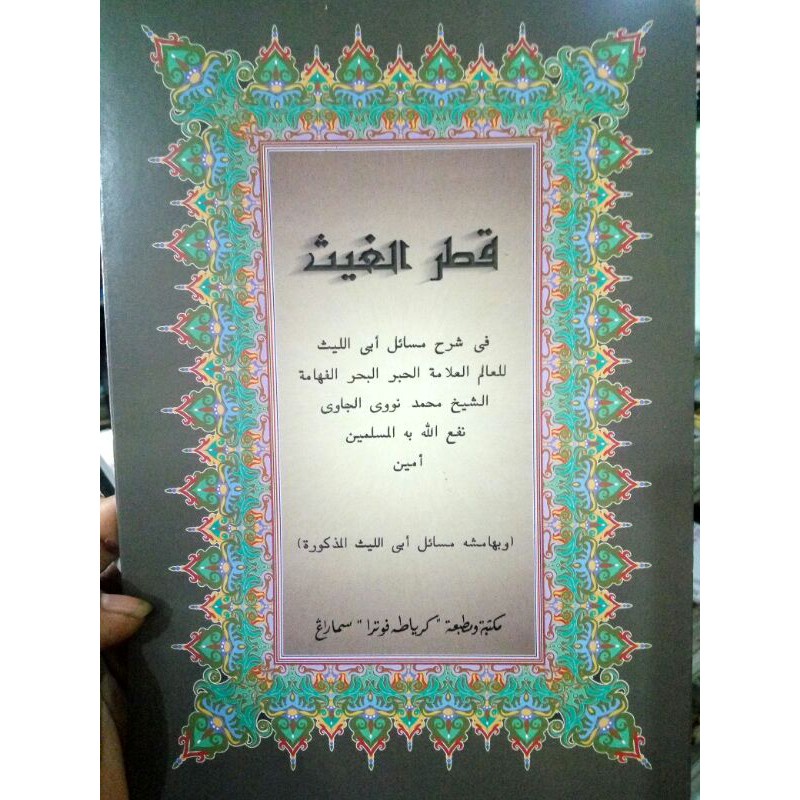 قطر الغيث
فى شرح مسائل أبى الليث
للعالم العلامة الحبر البحر الفهامة
الشيخ محمد نووى الجاوى
نفع الله به المسلمين
أمين
(وبهامشه مسائل أبى الليث المذكورة)
مكتبة ومطبعة "كرياطه فوترا" سماراڠ